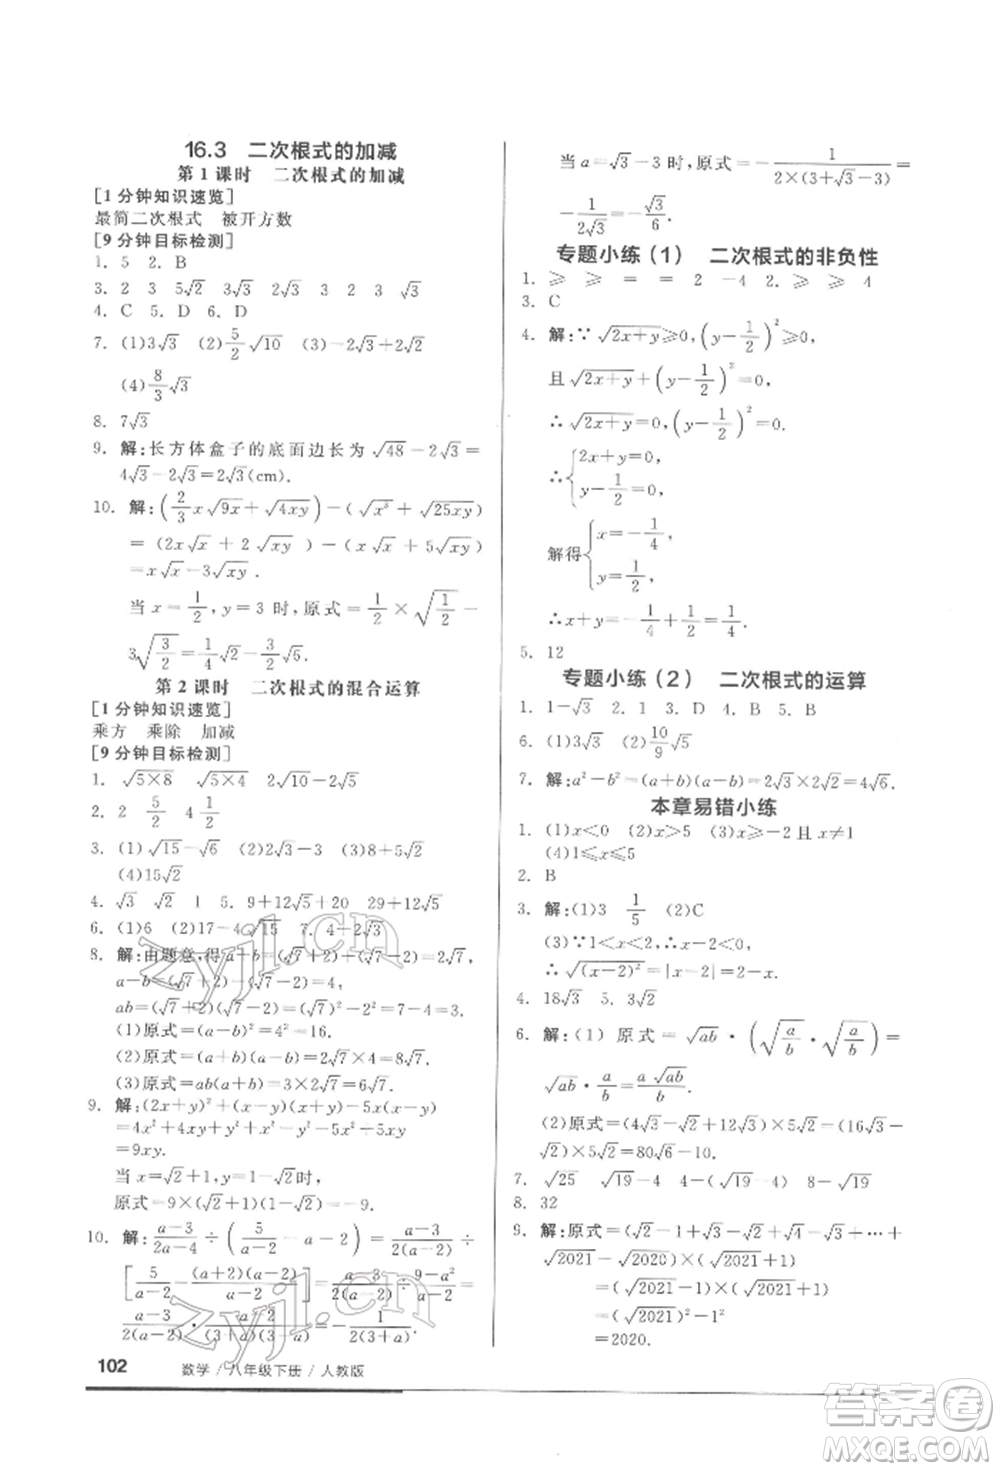 16.3 二次根式的加减
第1课时 二次根式的加减
[1分钟知识速览]
最简二次根式 被开方数
[9分钟目标检测]
1. 5 2. B
3. 2 3 5√2 3√3 2 3 √3
4. C 5. D 6. D
7. (1)3√3 (2)5/2√10 (3)-2√3+√2
(4)8/3√3
8. 7√3
9. 解:长方体盒子的底面边长为√48-2√3=
4√3-2√3=2√3(cm).
10. 解:(2/3x√9x+√4xy)-(√x³+√25xy)
=(2x√x+2√xy)-(x√x+5√xy)
=x√x-3√xy.
当x=1/2,y=3时,原式=1/2×√1/2-
3√3/2=1/4√2-3/2√6.
第2课时 二次根式的混合运算
[1分钟知识速览]
乘方 乘除 加减
[9分钟目标检测]
1. √5×8 √5×4 2√10-2√5
2. 2 5/2 4 1/2
3. (1)√15-√6 (2)3√3-2
(4)15√2
4. √3 √2 1 5. 9+2√5 6√2
6. (1)6 (2)17-4√15 7. 4-√3
8. 解:由题意,得a+b=(√7+2)+(√7-2)=2√7,
a-b=(√7+2)-(√7-2)=4,
ab=(√7+2)(√7-2)=(√7)²-2²=3.
(1)原式=(a-b)²=4²=16.
(2)原式=(a+b)(a-b)=2√7×4=8√7.
(3)原式=ab(a+b)=3×2√7=6√7.
9. 解:(2x+y)²+(x-y)(x+y)-5x(x-y)
=4x²+4xy+y²+x²-y²-5x²+5xy
=9xy.
当x=√2+1,y=√2-1时,
原式=9×(√2+1)(√2-1)=9.
10. 解:a-3/2a-4÷(5/a-2-a-2)=a-3/2(a-2)÷
[5/a-2-(a+2)(a-2)/a-2]=a-3/2(a-2)÷9-a²/a-2=
a-3/2(a-2)·a-2/(3+a)(3-a)=-1/2(3+a).
102 数学/八年级下册/人教版
当a=√3-3时,原式=-1/2×(3+√3-3)=
-1/2√3=-√3/6.
专题小练(1) 二次根式的非负性
1. ≥ ≥ = = 2 -4 2. ≥ ≥ 4
3. C
4. 解:∵√2x+y≥0,(y-1/2)²≥0,
且√2x+y+(y-1/2)²=0,
∴√2x+y=0,(y-1/2)²=0,
∴{2x+y=0, y-1/2=0,
解得{x=-1/4, y=1/2,
∴x+y=-1/4+1/2=1/4.
5. 12
专题小练(2) 二次根式的运算
1. 1-√3 2. 1 3. D 4. B 5. B
6. (1)3√3 (2)10/9√5
7. 解:a²-b²=(a+b)(a-b)=2√3×2√2=4√6.
本章易错小练
1. (1)x<0 (2)x>5 (3)x≥-2且x≠1
(4)1≤x≤5
2. B
3. 解:(1)3 1/5 (2)C
(3)∵1<x<2,∴x-2<0,
∴√(x-2)²=|x-2|=2-x.
4. 18√3 5. 3√2
6. 解:(1)原式=√ab·(√a/b·√a/b)=
√ab·a/b=a√ab/b.
(2)原式=(4√3-√2+12√3)×5√2=(16√3-
√2)×5√2=80√6-10.
7. √25 √19-4 8-√19
8. 32
9. 解:原式=(√2-1+√3-√2+√4-√3+…+
√2021-√2020)×(√2021+1)
=(√2021-1)×(√2021+1)
=(√2021)²-1²
=2020.
zyjl.cn
zyjl.cn
答案卷
MXQE.COM